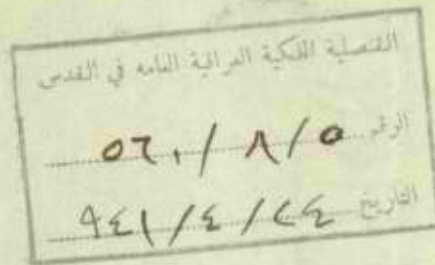 القنصلية الملكية العراقية العامه في القدس
الرقم ٥٦٠/٨/٥
التاريخ ٩٤١/٤/٢٤